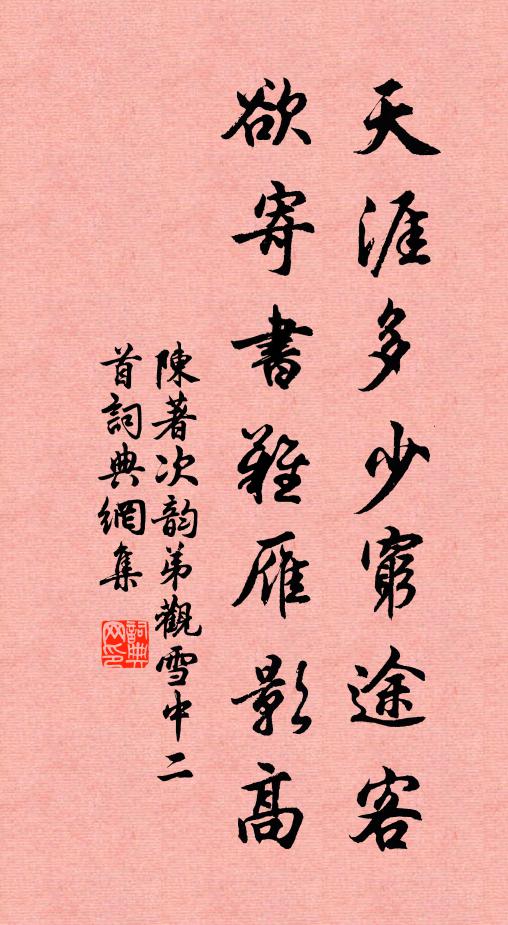 天涯多少窮途客
欲寄書難雁影高
陳著次韵弟觀雪中二
首詞典網集
詞典網印